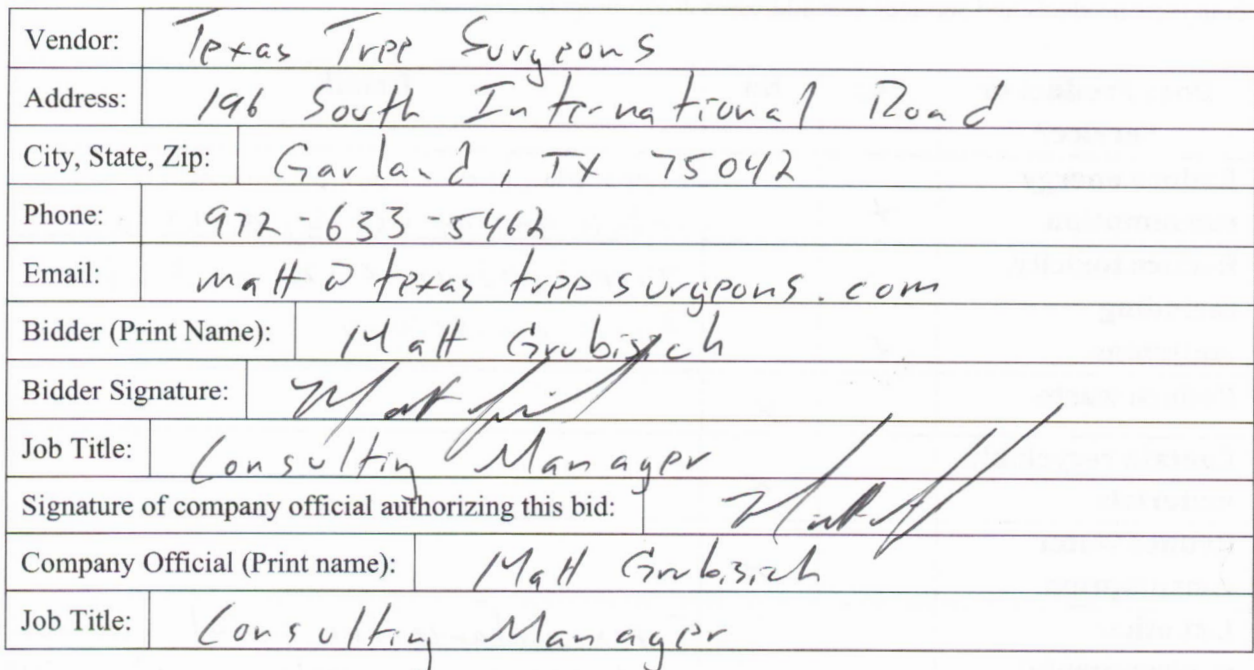 Vendor: Texas Tree Surgeons
Address: 196 South International Road
City, State, Zip: Garland, TX 75042
Phone: 972-633-5462
Email: matt@texastreesurgeons.com
Bidder (Print Name): Matt Grubisich
Bidder Signature:
Job Title: Consulting Manager
Signature of company official authorizing this bid:
Company Official (Print name): Matt Grubisich
Job Title: Consulting Manager